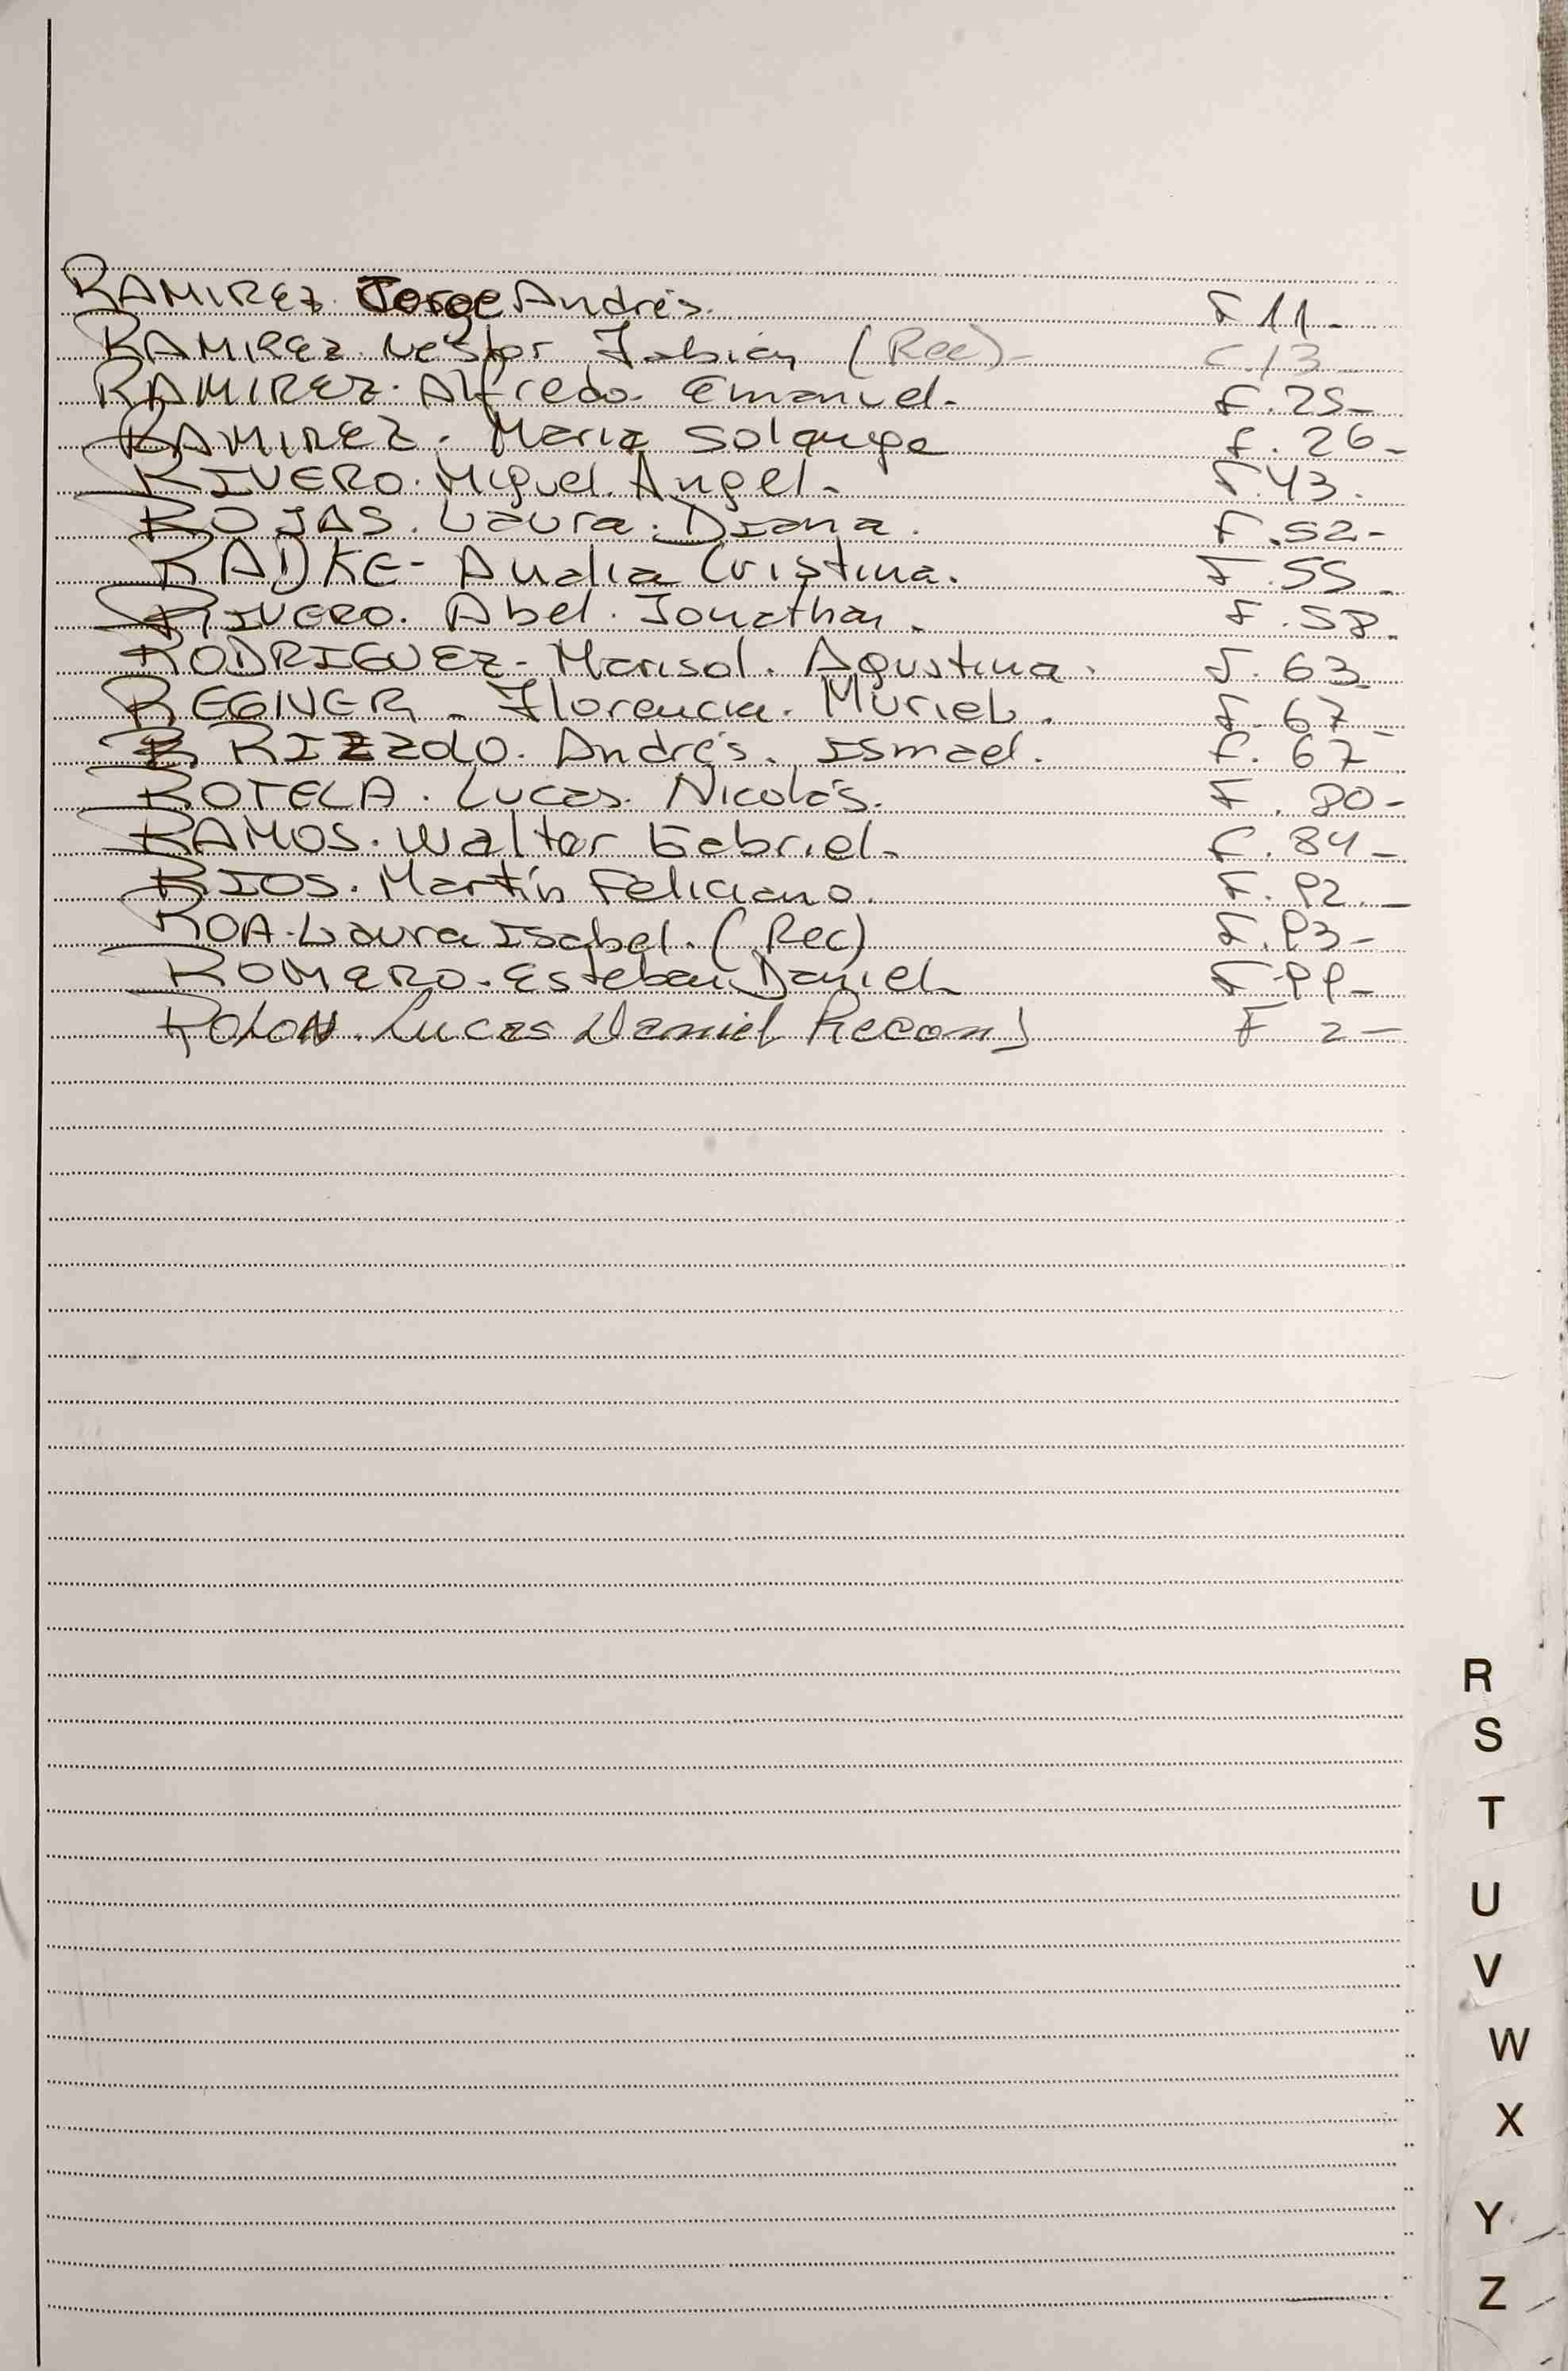 RAMIREZ Jorge Andrés. F 11-
RAMIREZ. Néstor Fabian (Rec)- F.13-
RAMIREZ. Alfredo. Emanuel- F.25-
RAMIREZ. Maria Solange F. 26-
RIVERO. Miguel. Angel- F.43.
ROJAS. Laura. Diana. F.52-
RADKE- Analia Cristina. F.55-
RIVERO. Abel. Jonathan. F.58.
RODRIGUEZ- Marisol. Agustina. F. 63
REGINER- Florencia. Muriel. F. 67-
R RIZZOLO. Andrés. Ismael. F. 67
ROTELA. Lucas. Nicolás. F. 80-
RAMOS. Walter Gabriel- F.84-
RIOS. Martín Feliciano. F. 92.-
ROA. Laura Isabel. (Rec) F.93-
ROMERO. Esteban Daniel- F 99-
ROLON. Lucas Daniel F 2-
R
S
T
U
V
W
X
Y
Z